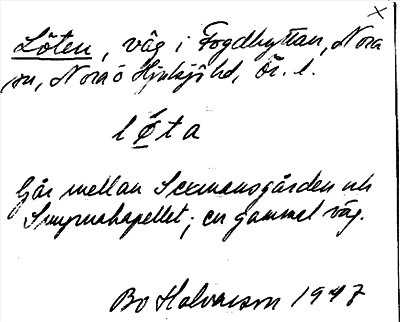 Löten, väg i Fogdhyttan, Nora
sn, Nora o Hjulsjö hd, Ör. l.
lø̄́ta
Går mellan Sexmansgården och
Smyrnakapellet; en gammal väg.
Bo Halvarson 1947